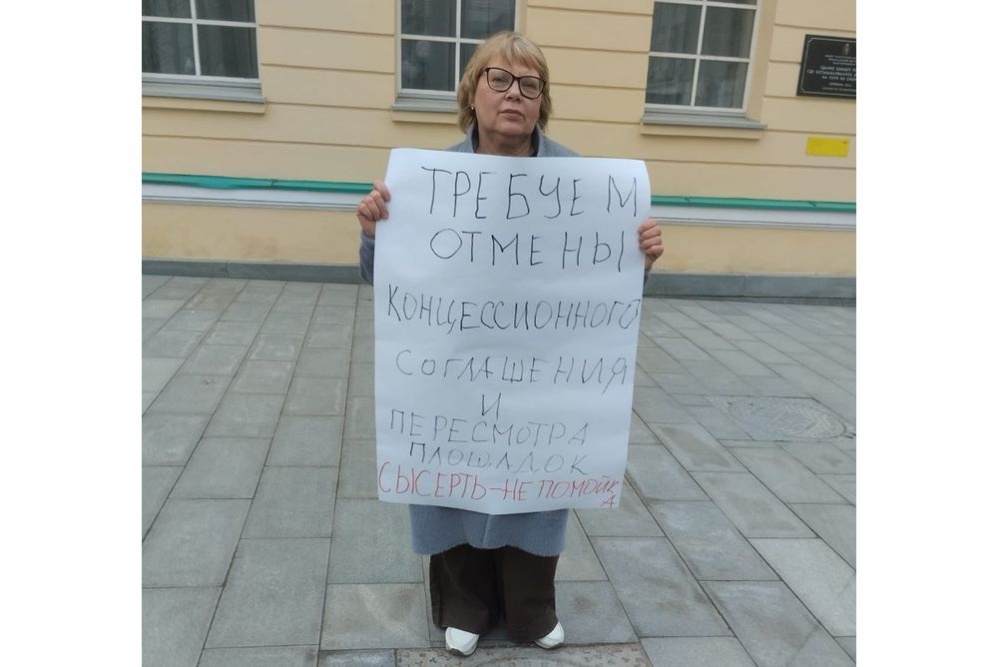 ТРЕБУЕМ
ОТМЕНЫ
КОНЦЕССИОННОГО
СОГЛАШЕНИЯ
И
ПЕРЕСМОТРА
ПЛОЩАДОК
СЫСЕРТЬ-НЕ ПОМОЙК
А